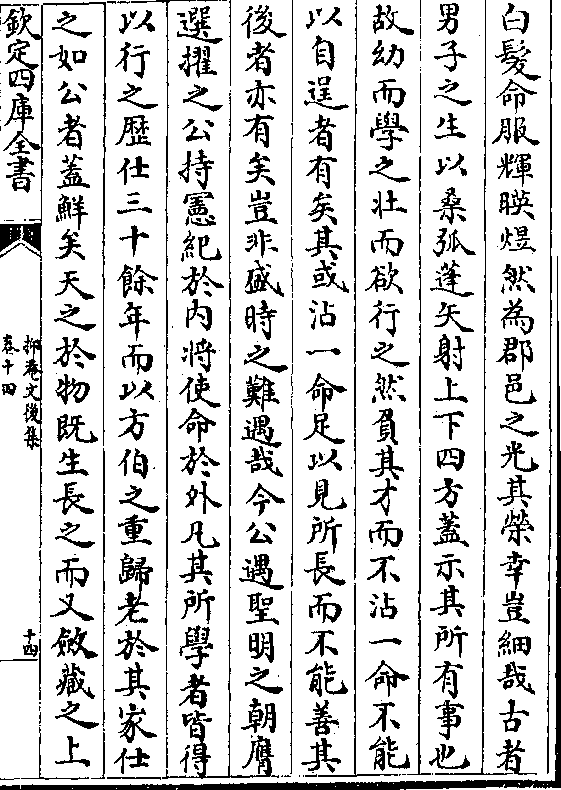 白髮命服輝暎煜然為郡邑之光其榮幸豈細哉古者
男子之生以桑弧蓬矢射上下四方蓋示其所有事也
故幼而學之壯而欲行之然負其才而不沾一命不能
以自逞者有矣其或沾一命足以見所長而不能善其
後者亦有矣豈非盛時之難遇哉今公遇聖明之朝膺
選擢之公持憲紀於内將使命於外凡其所學者皆得
以行之歴仕三十餘年而以方伯之重歸老於其家仕
之如公者蓋鮮矣天之於物既生長之而又斂藏之上
欽定四庫全書
抑菴文後集
卷十四
十四